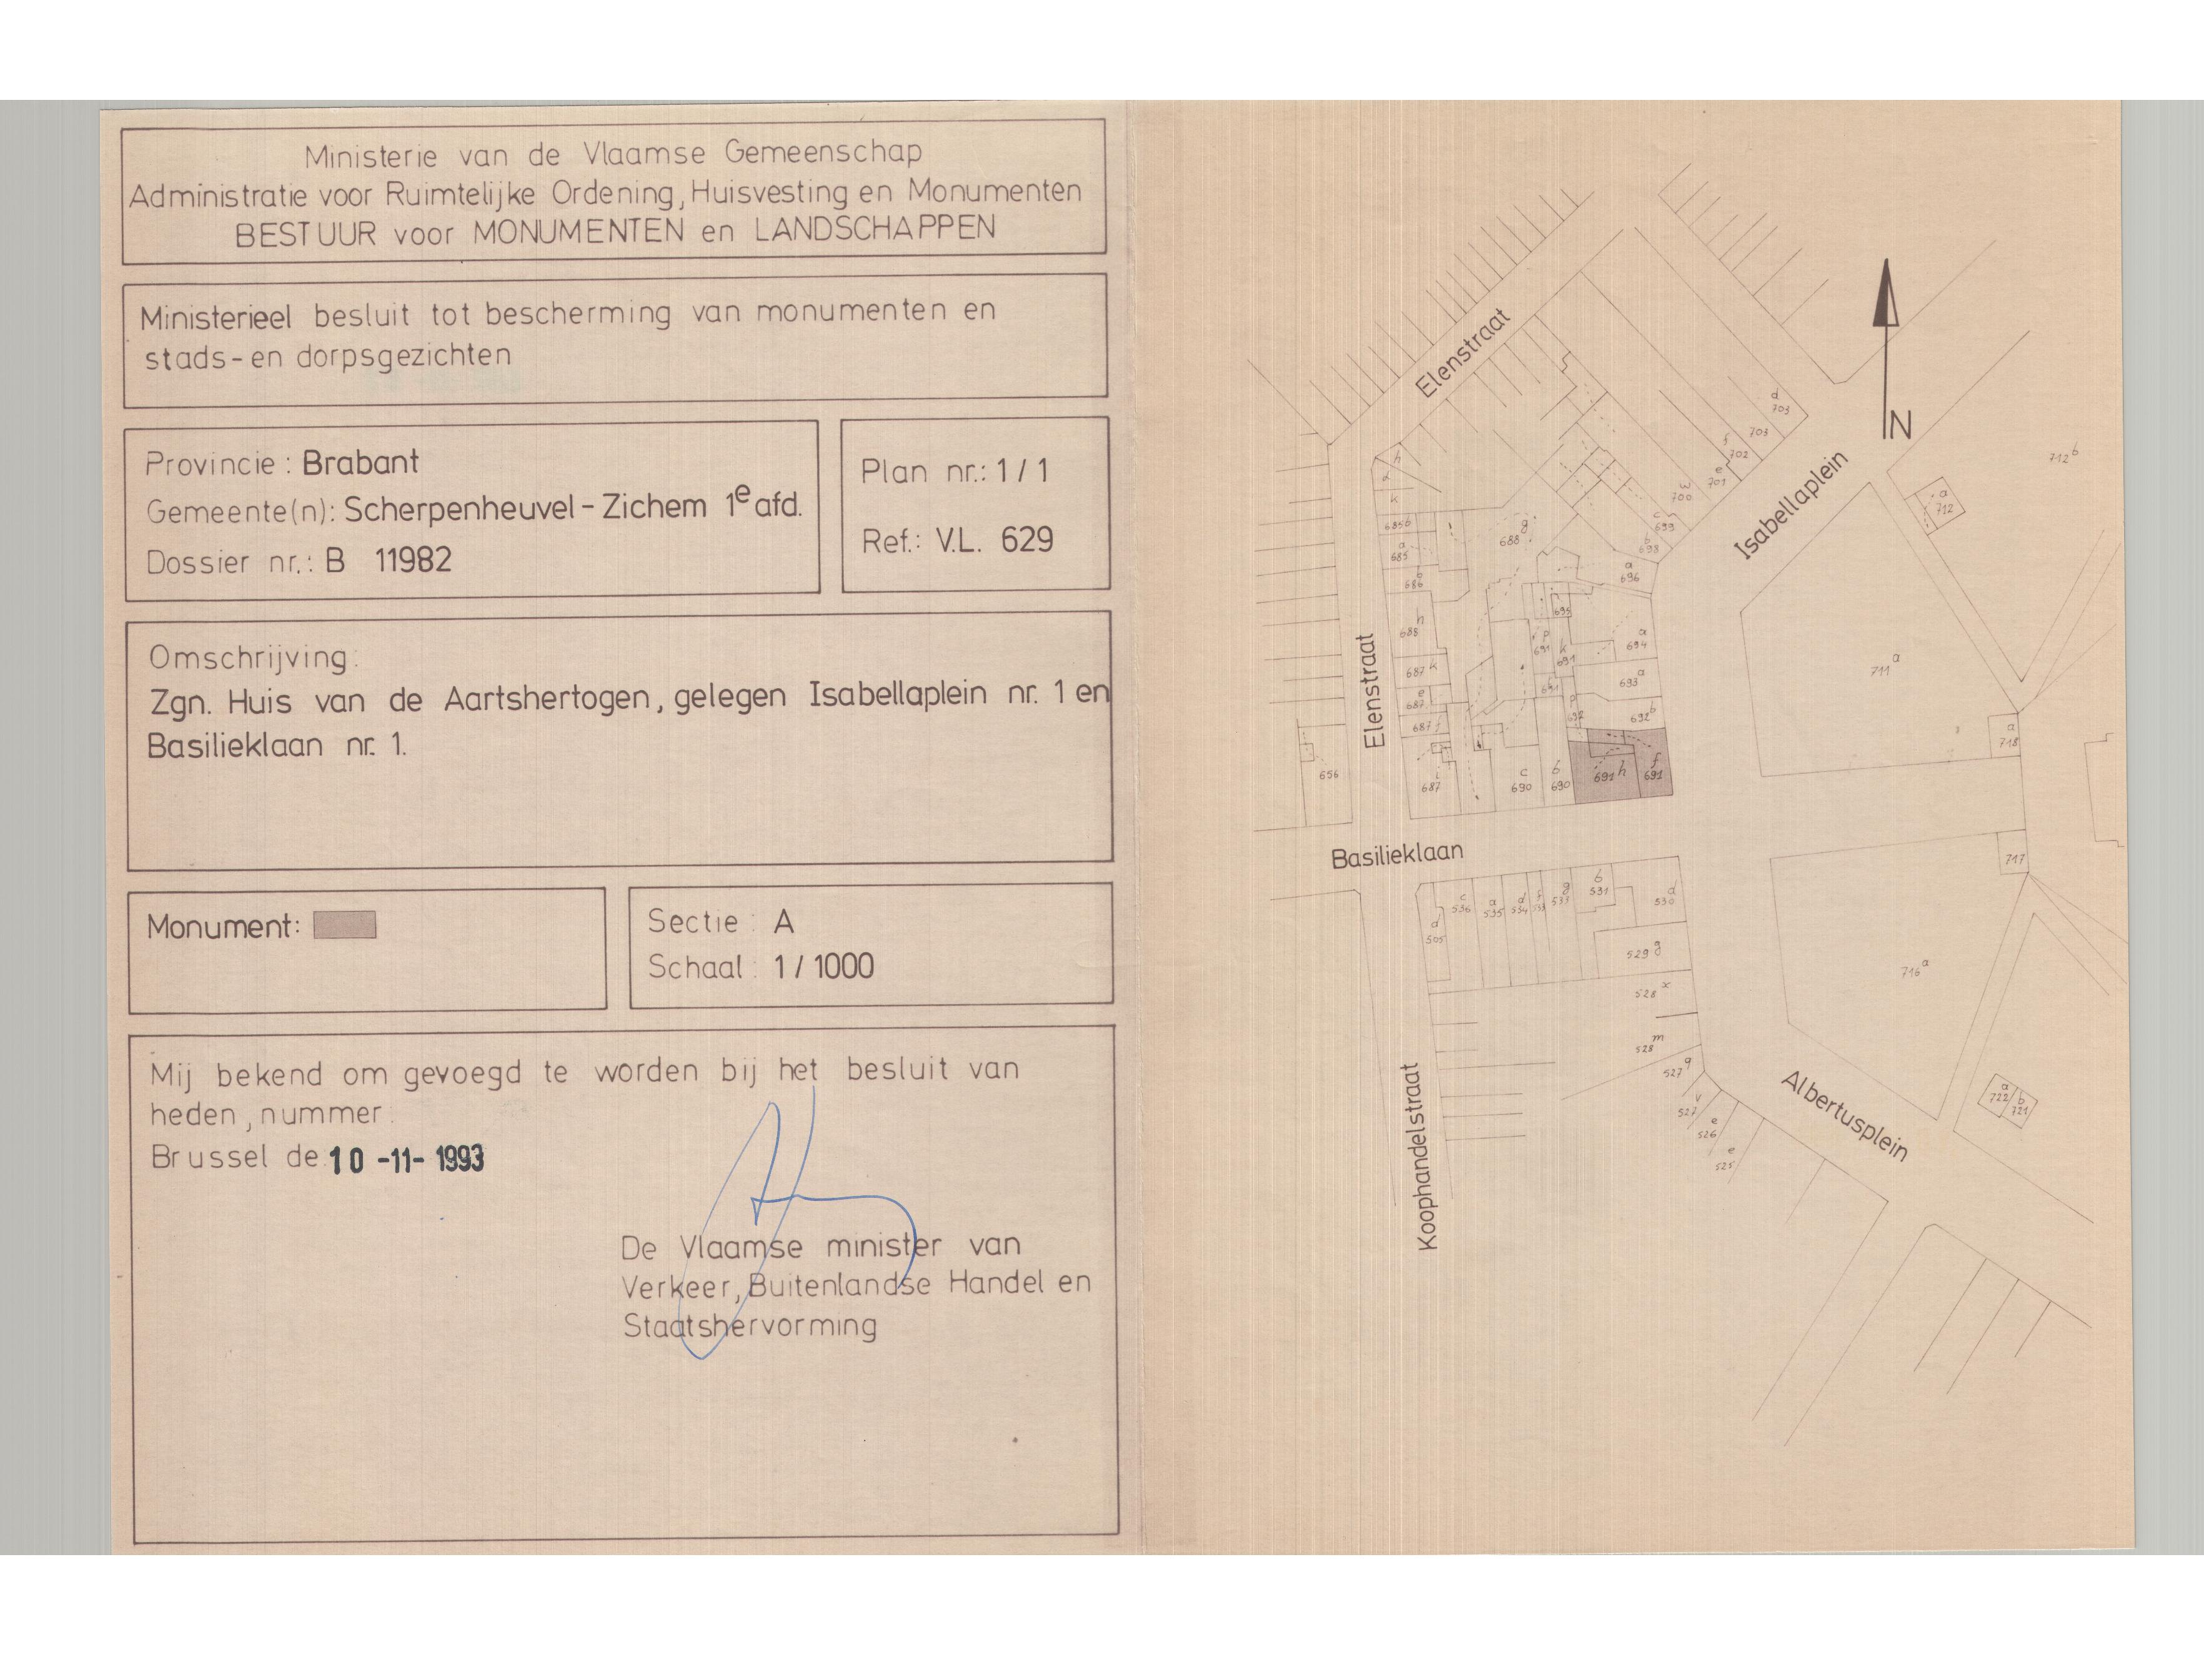 Ministerie van de Vlaamse Gemeenschap
Administratie voor Ruimtelijke Ordening, Huisvesting en Monumenten
BESTUUR voor MONUMENTEN en LANDSCHAPPEN
Ministerieel besluit tot bescherming van monumenten en
stads-en dorpsgezichten
Provincie: Brabant
Gemeente(n): Scherpenheuvel-Zichem 1e afd.
Dossier nr.: B 11982
Plan nr.: 1/1
Ref.: V.L. 629
Omschrijving:
Zgn. Huis van de Aartshertogen, gelegen Isabellaplein nr. 1 en
Basilieklaan nr. 1.
Monument:
Sectie: A
Schaal: 1/1000
Mij bekend om gevoegd te worden bij het besluit van
heden, nummer:
Brussel de 10 -11- 1993
De Vlaamse minister van
Verkeer, Buitenlandse Handel en
Staatshervorming
Elenstraat
N
Isabellaplein
d
703
703
f
702
e
701
w
700
c
699
b
698
a
696
712 b
a
712
h
k
685 b
a
685
b
686
g
688
h
688
687 k
e
687
687 f
i
687
Elenstraat
695
p
691
k
691
a
694
693 a
692 b
p
692
691 h
f
691
c
690
b
690
656
711 a
a
718
717
Basilieklaan
d
505
c
536
a
535
d
534
f
533
g
533
b
531
d
530
529 g
528 x
528 m
527 q
v
527
e
526
e
525
716 a
a
722
b
721
Koophandelstraat
Albertusplein